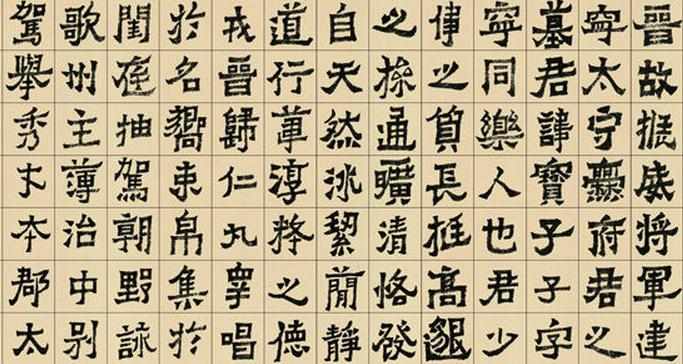 晉故振威將軍建
寧太守爨府君之
墓君諱寶子子字
寧同樂人也君少
偉之質長挺高邈
之操通曠清恪發
自天然冰潔簡靜
道行葦淳粹之德
戎晉歸仁九皋唱
於名響束帛集於
閨庭抽駕朝野詠
歌州主簿治中別
駕舉秀才本郡太